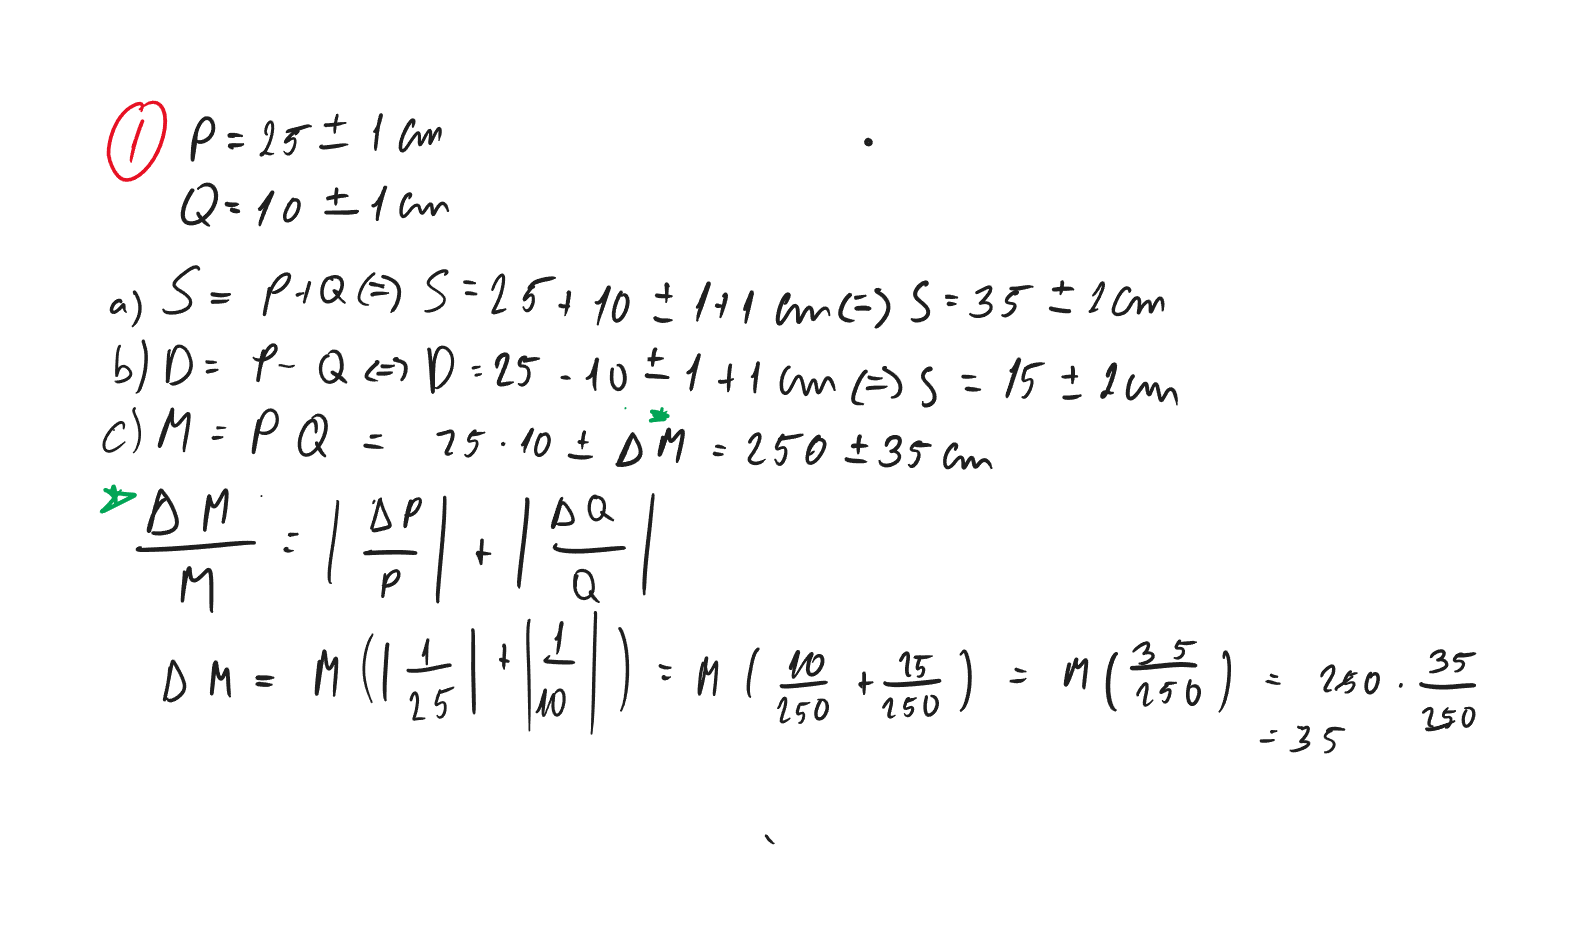 1 P = 25 ± 1 cm
Q = 10 ± 1 cm
a) S = P+Q (=) S = 25 + 10 ± 1+1 cm (=) S = 35 ± 2 cm
b) D = P - Q (=) D = 25 - 10 ± 1 + 1 cm (=) S = 15 ± 2 cm
c) M = P Q = 25 · 10 ± Δ M* = 250 ± 35 cm
* ΔM/M = |ΔP/P| + |ΔQ/Q|
ΔM = M (|1/25| + |1/10|) = M (10/250 + 25/250) = M (35/250) = 250 · 35/250
= 35